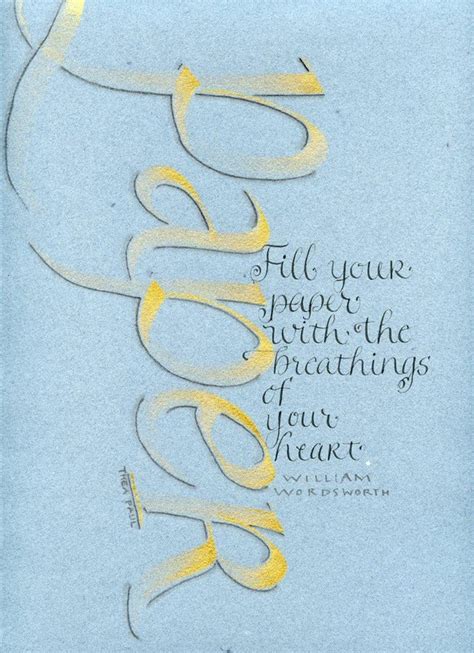 paper
Fill your
paper
with the
breathings
of
your
heart
WILLIAM
WORDSWORTH
THEA PAUL